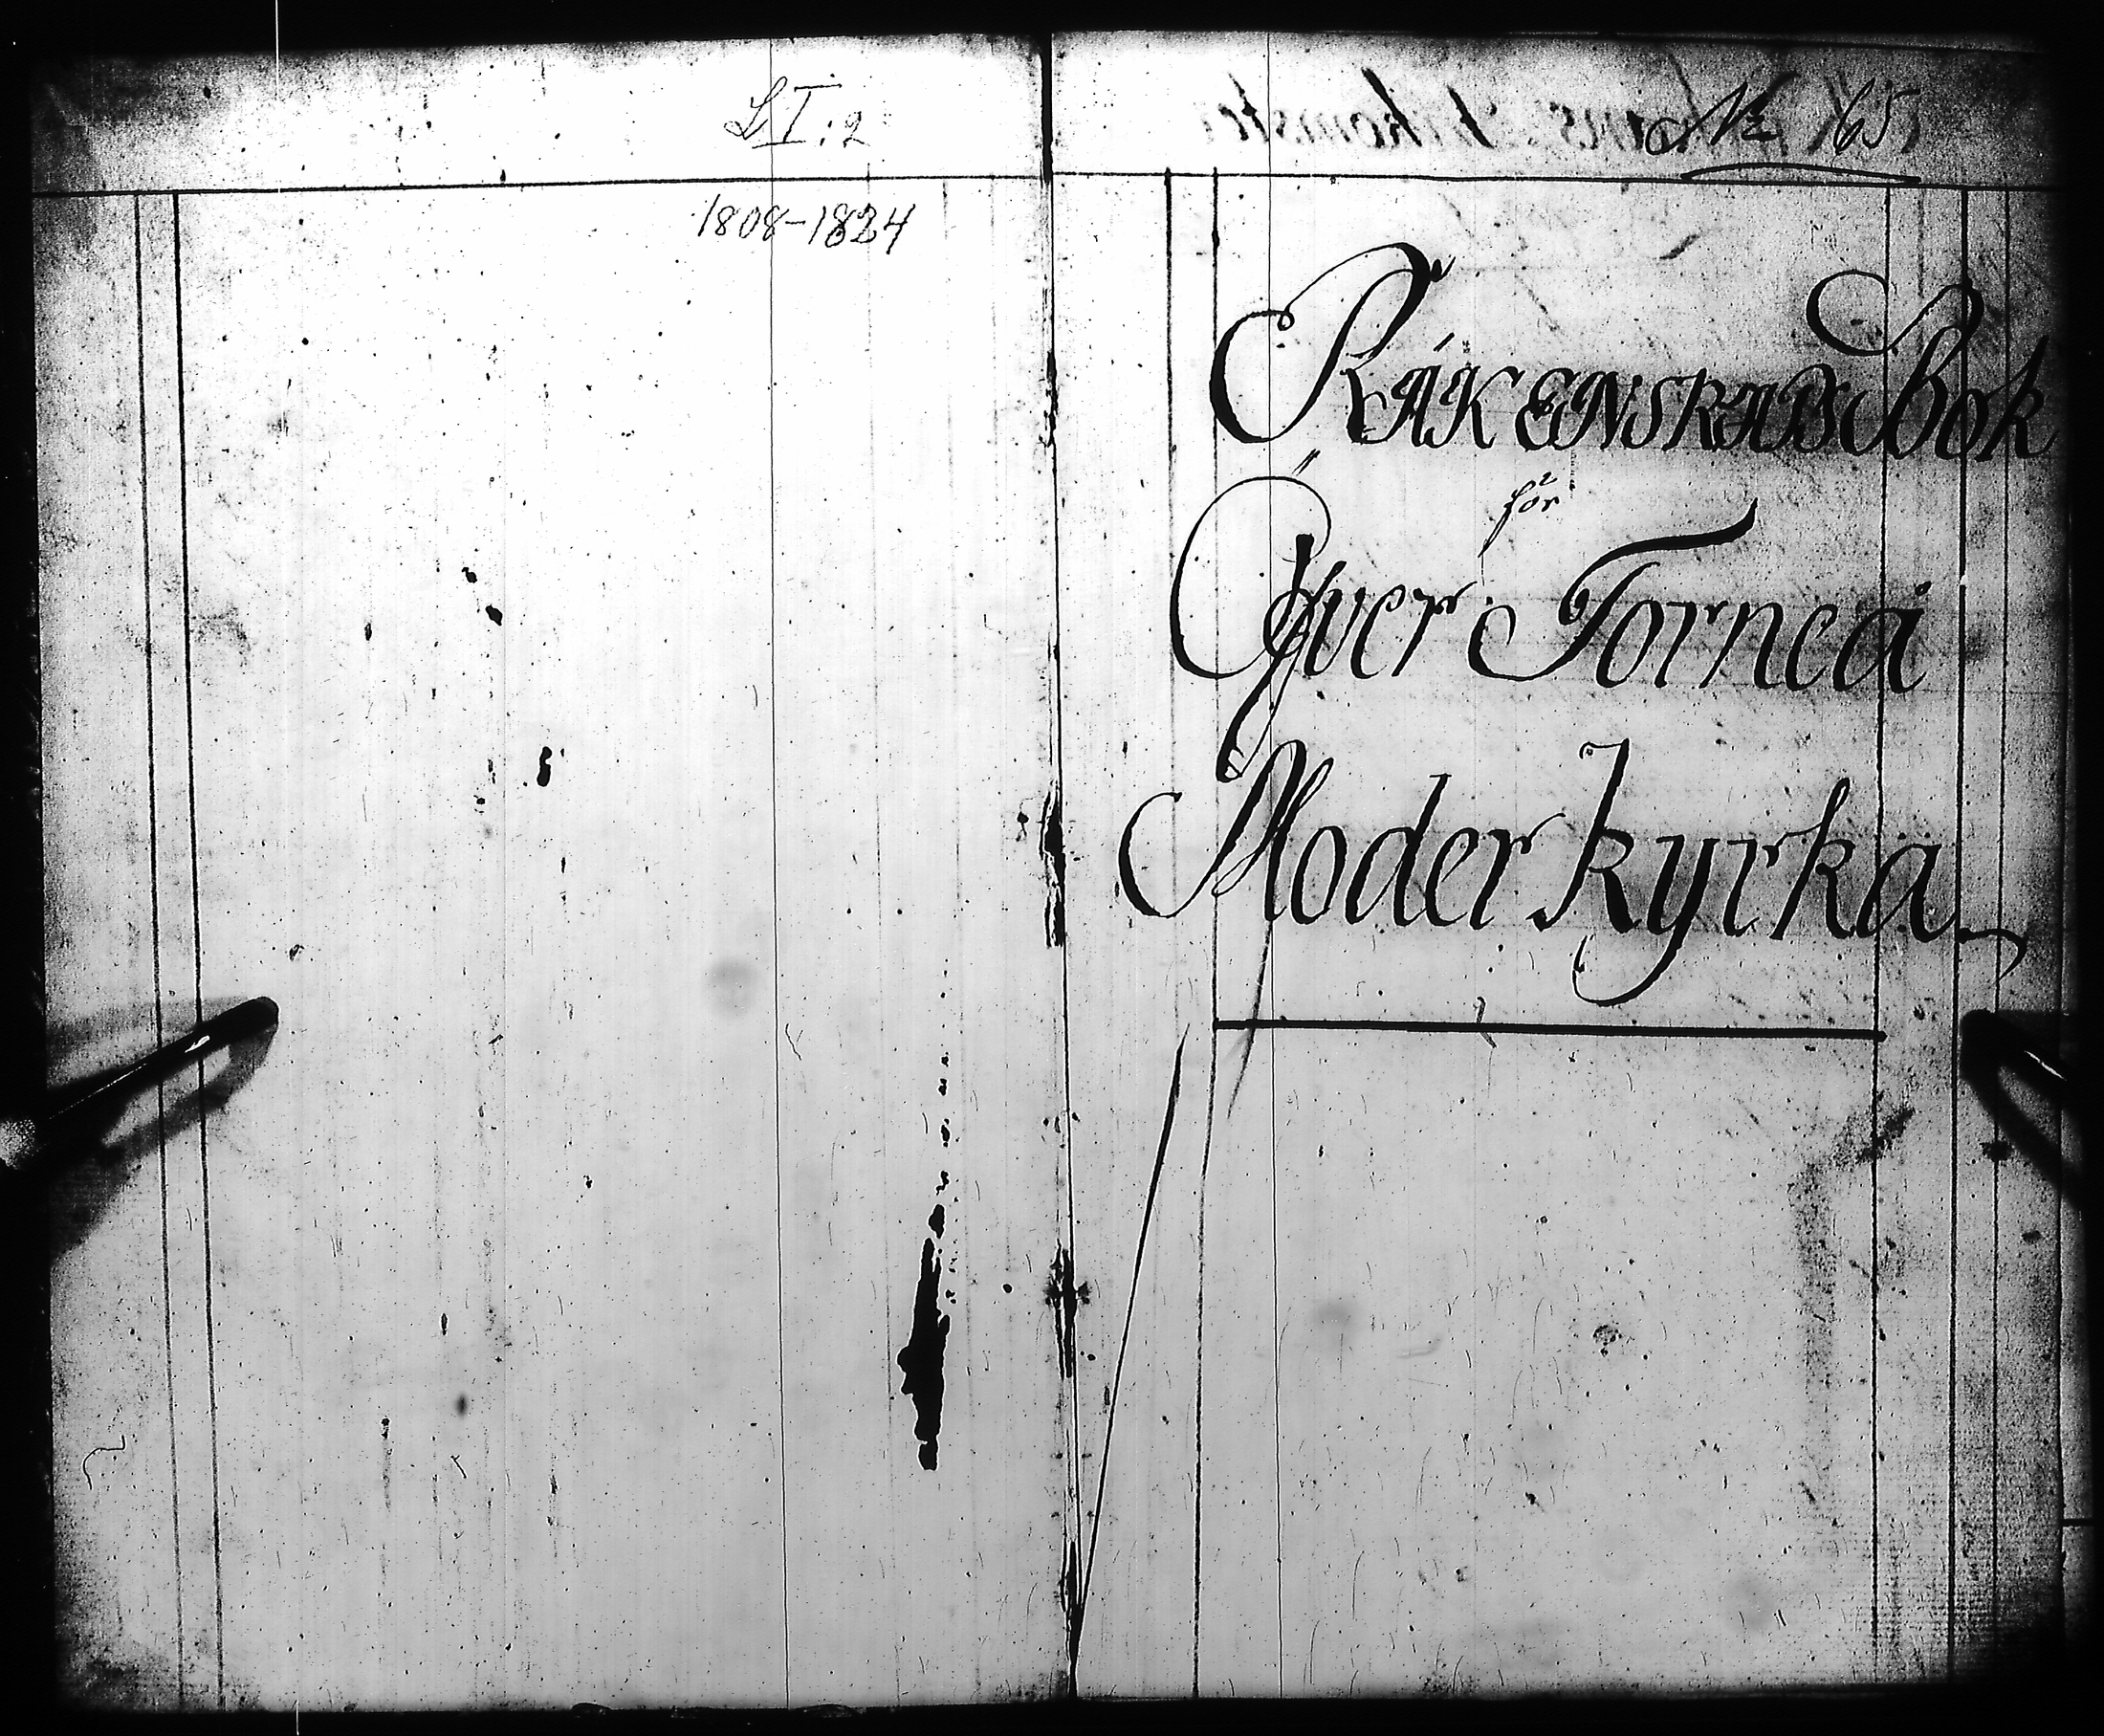 LI:2
1808-1824
No 65
RÄKENSKABS Bok
för
Öfver Torneå
Moder kyrka